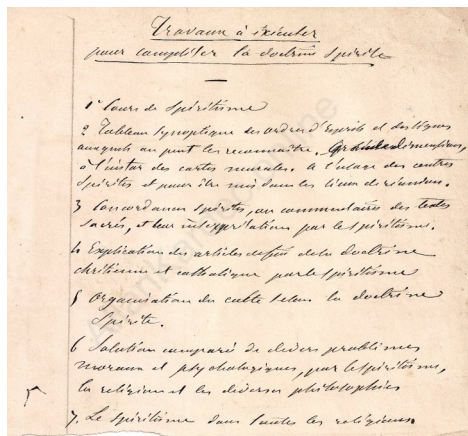 Travaux à exécuter
pour compléter la doctrine spirite
1° Cours de Spiritisme
2 Tableau synoptique des ordres d'Esprits et des signes
auxquels on peut les reconnaître. Grandes dimensions,
à l'instar des cartes murales. à l'usage des centres
spirites et pour être mis dans les lieux de réunion.
3 Concordances spirites, ou commentaires des textes
sacrés, et leur interprétation par le spiritisme.
4 Explication des articles de foi de la doctrine
chrétienne et catholique par le spiritisme
5 Organisation du culte selon la doctrine
Spirite.
6 Solution comparée de divers problèmes
moraux et psychologiques, par le spiritisme,
la religion et les diverses philosophies
7. Le Spiritisme dans toutes les religions.